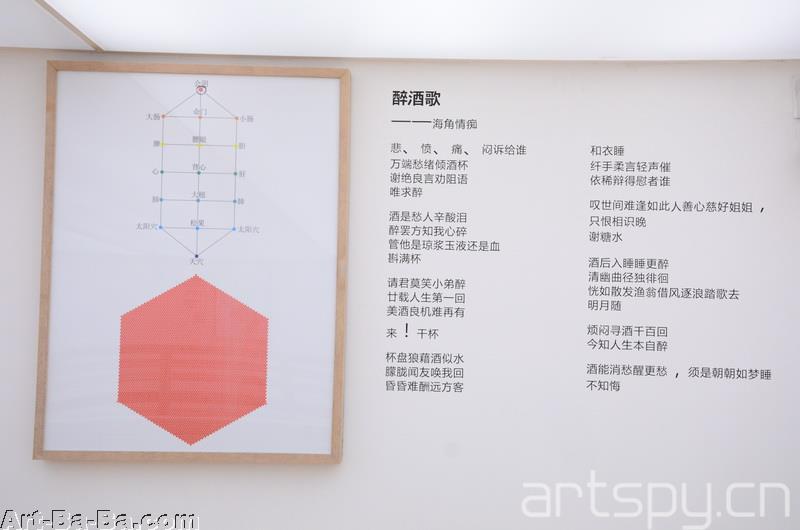 会阴
大肠
命门
小肠
脾
腰眼
胆
心
背心
肝
肺
大椎
肺
太阳穴
松果
太阳穴
天穴
醉酒歌
———海角情痴
悲、愤、痛、闷诉给谁
万端愁绪倾酒杯
谢绝良言劝阻语
唯求醉
酒是愁人辛酸泪
醉罢方知我心碎
管他是琼浆玉液还是血
斟满杯
请君莫笑小弟醉
廿载人生第一回
美酒良机难再有
来！干杯
杯盘狼藉酒似水
朦胧闻友唤我回
昏昏难酬远方客
和衣睡
纤手柔言轻声催
依稀辩得慰者谁
叹世间难逢如此人善心慈好姐姐，
只恨相识晚
谢糖水
酒后入睡睡更醉
清幽曲径独徘徊
恍如散发渔翁借风逐浪踏歌去
明月随
烦闷寻酒千百回
今知人生本自醉
酒能消愁醒更愁，须是朝朝如梦睡
不知悔
artspy.cn
Art-Ba-Ba.com